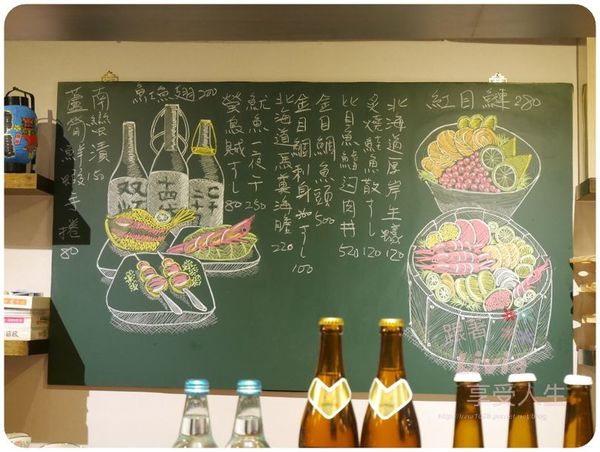 紅目鰱 280
北海道厚岸生蠔 120
炙燒鮭魚散すし 120
比目魚鰭邊肉丼 520
金目鯛魚頭 500
金目鯛刺身 すし 100
北海道馬糞海膽 220
魷魚一夜干 250
螢烏賊すし 80
紅魚翅 200
南蠻漬 150
蘆筍鮮蝦手捲 80
享受人生